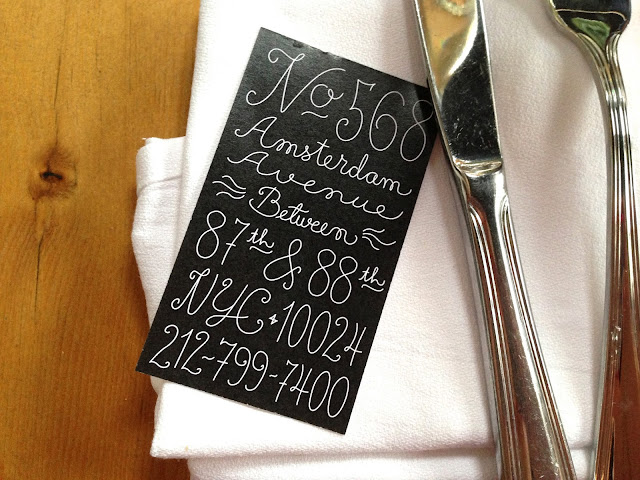 No 568
Amsterdam
Avenue
Between
87th & 88th
NYC 10024
212-799-7400